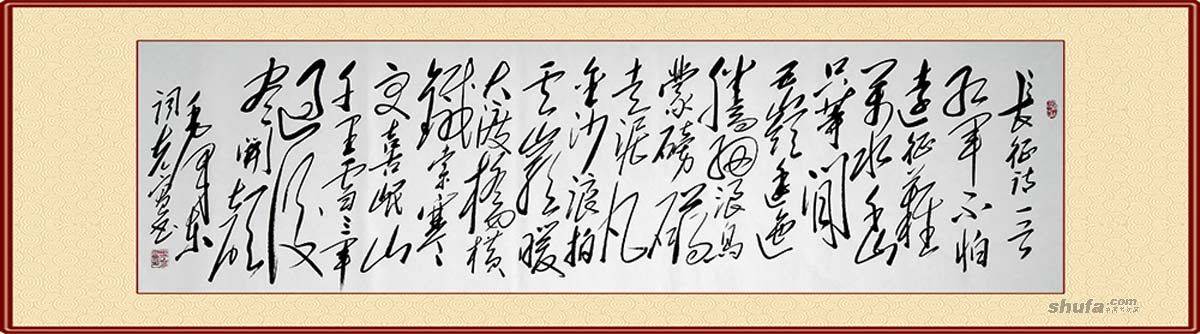 長征诗一首
红军不怕
远征難
萬水千山
只等闲
五嶺逶迤
腾细浪乌
蒙磅礴
走泥丸
金沙浪拍
云崖暖
大渡桥横
鐵索寒
更喜岷山
千里雪三军
过后
尽開颜
毛泽东
词
shufa.com